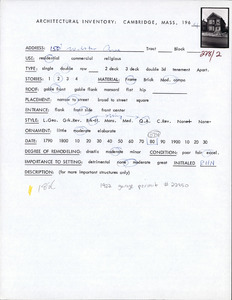 ARCHITECTURAL INVENTORY: CAMBRIDGE, MASS, 196
ADDRESS: 150 Tract Block 278/2
USE: residential commercial religious
TYPE: single double row 2 deck 3 deck double 3d tenement Apart.
STORIES: 1 2 3 4 MATERIAL: Frame Brick Mod. narrow
ROOF: gable front gable flank mansard flat hip
PLACEMENT: narrow to street broad to street square
ENTRANCE: flank front side front center
STYLE: L.Geo. GR.Rev. Br-It. Mans. Med. Q.A. C.Rev. None
ORNAMENT: little moderate elaborate
DATE: 1790 1800 10 20 30 40 50 60 70 80 90 1900 10 20 30
DEGREE OF REMODELING: drastic moderate minor CONDITION: poor fair excel.
IMPORTANCE TO SETTING: detrimental none moderate great INITIALED
DESCRIPTION: (for more important structures only)
1926 garage permit #